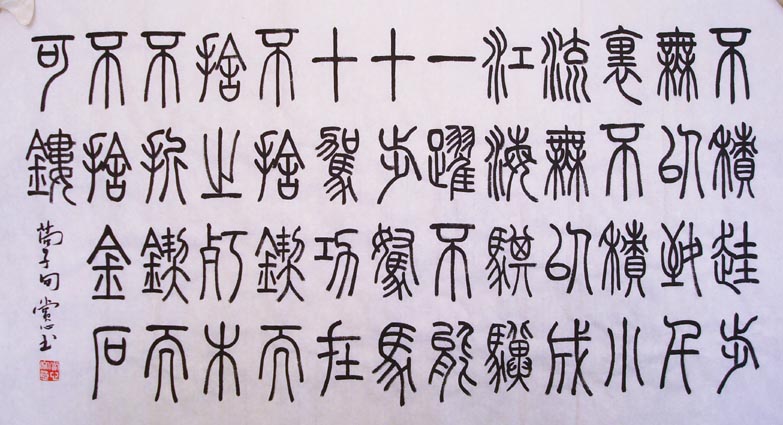 不積跬步
無以致千
裏不積小
流無以成
江海騏驥
一躍不能
十步駑馬
十駕功在
不捨鍥而
捨之朽木
不折鍥而
不捨金石
可鏤
荀子句 賞心玉